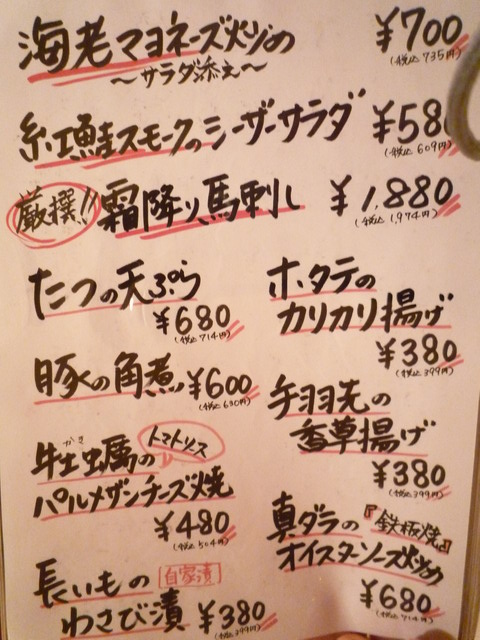 海老マヨネーズ炒め
～サラダ添え～
¥700
(税込735円)
紅鮭スモークのシーザーサラダ ¥580
(税込609円)
厳撰!! 霜降り馬刺し ¥1,880
(税込1,974円)
たつの天ぷら
¥680
(税込714円)
豚の角煮 ¥600
(税込630円)
かき
牡蠣の トマトソース
パルメザンチーズ焼
¥480
(税込504円)
長いもの 自家漬
わさび漬 ¥380
(税込399円)
ホタテの
カリカリ揚げ
¥380
(税込399円)
手羽先の
香草揚げ
¥380
(税込399円)
真ダラの 『鉄板焼』
オイスターソース炒め
¥680
(税込714円)